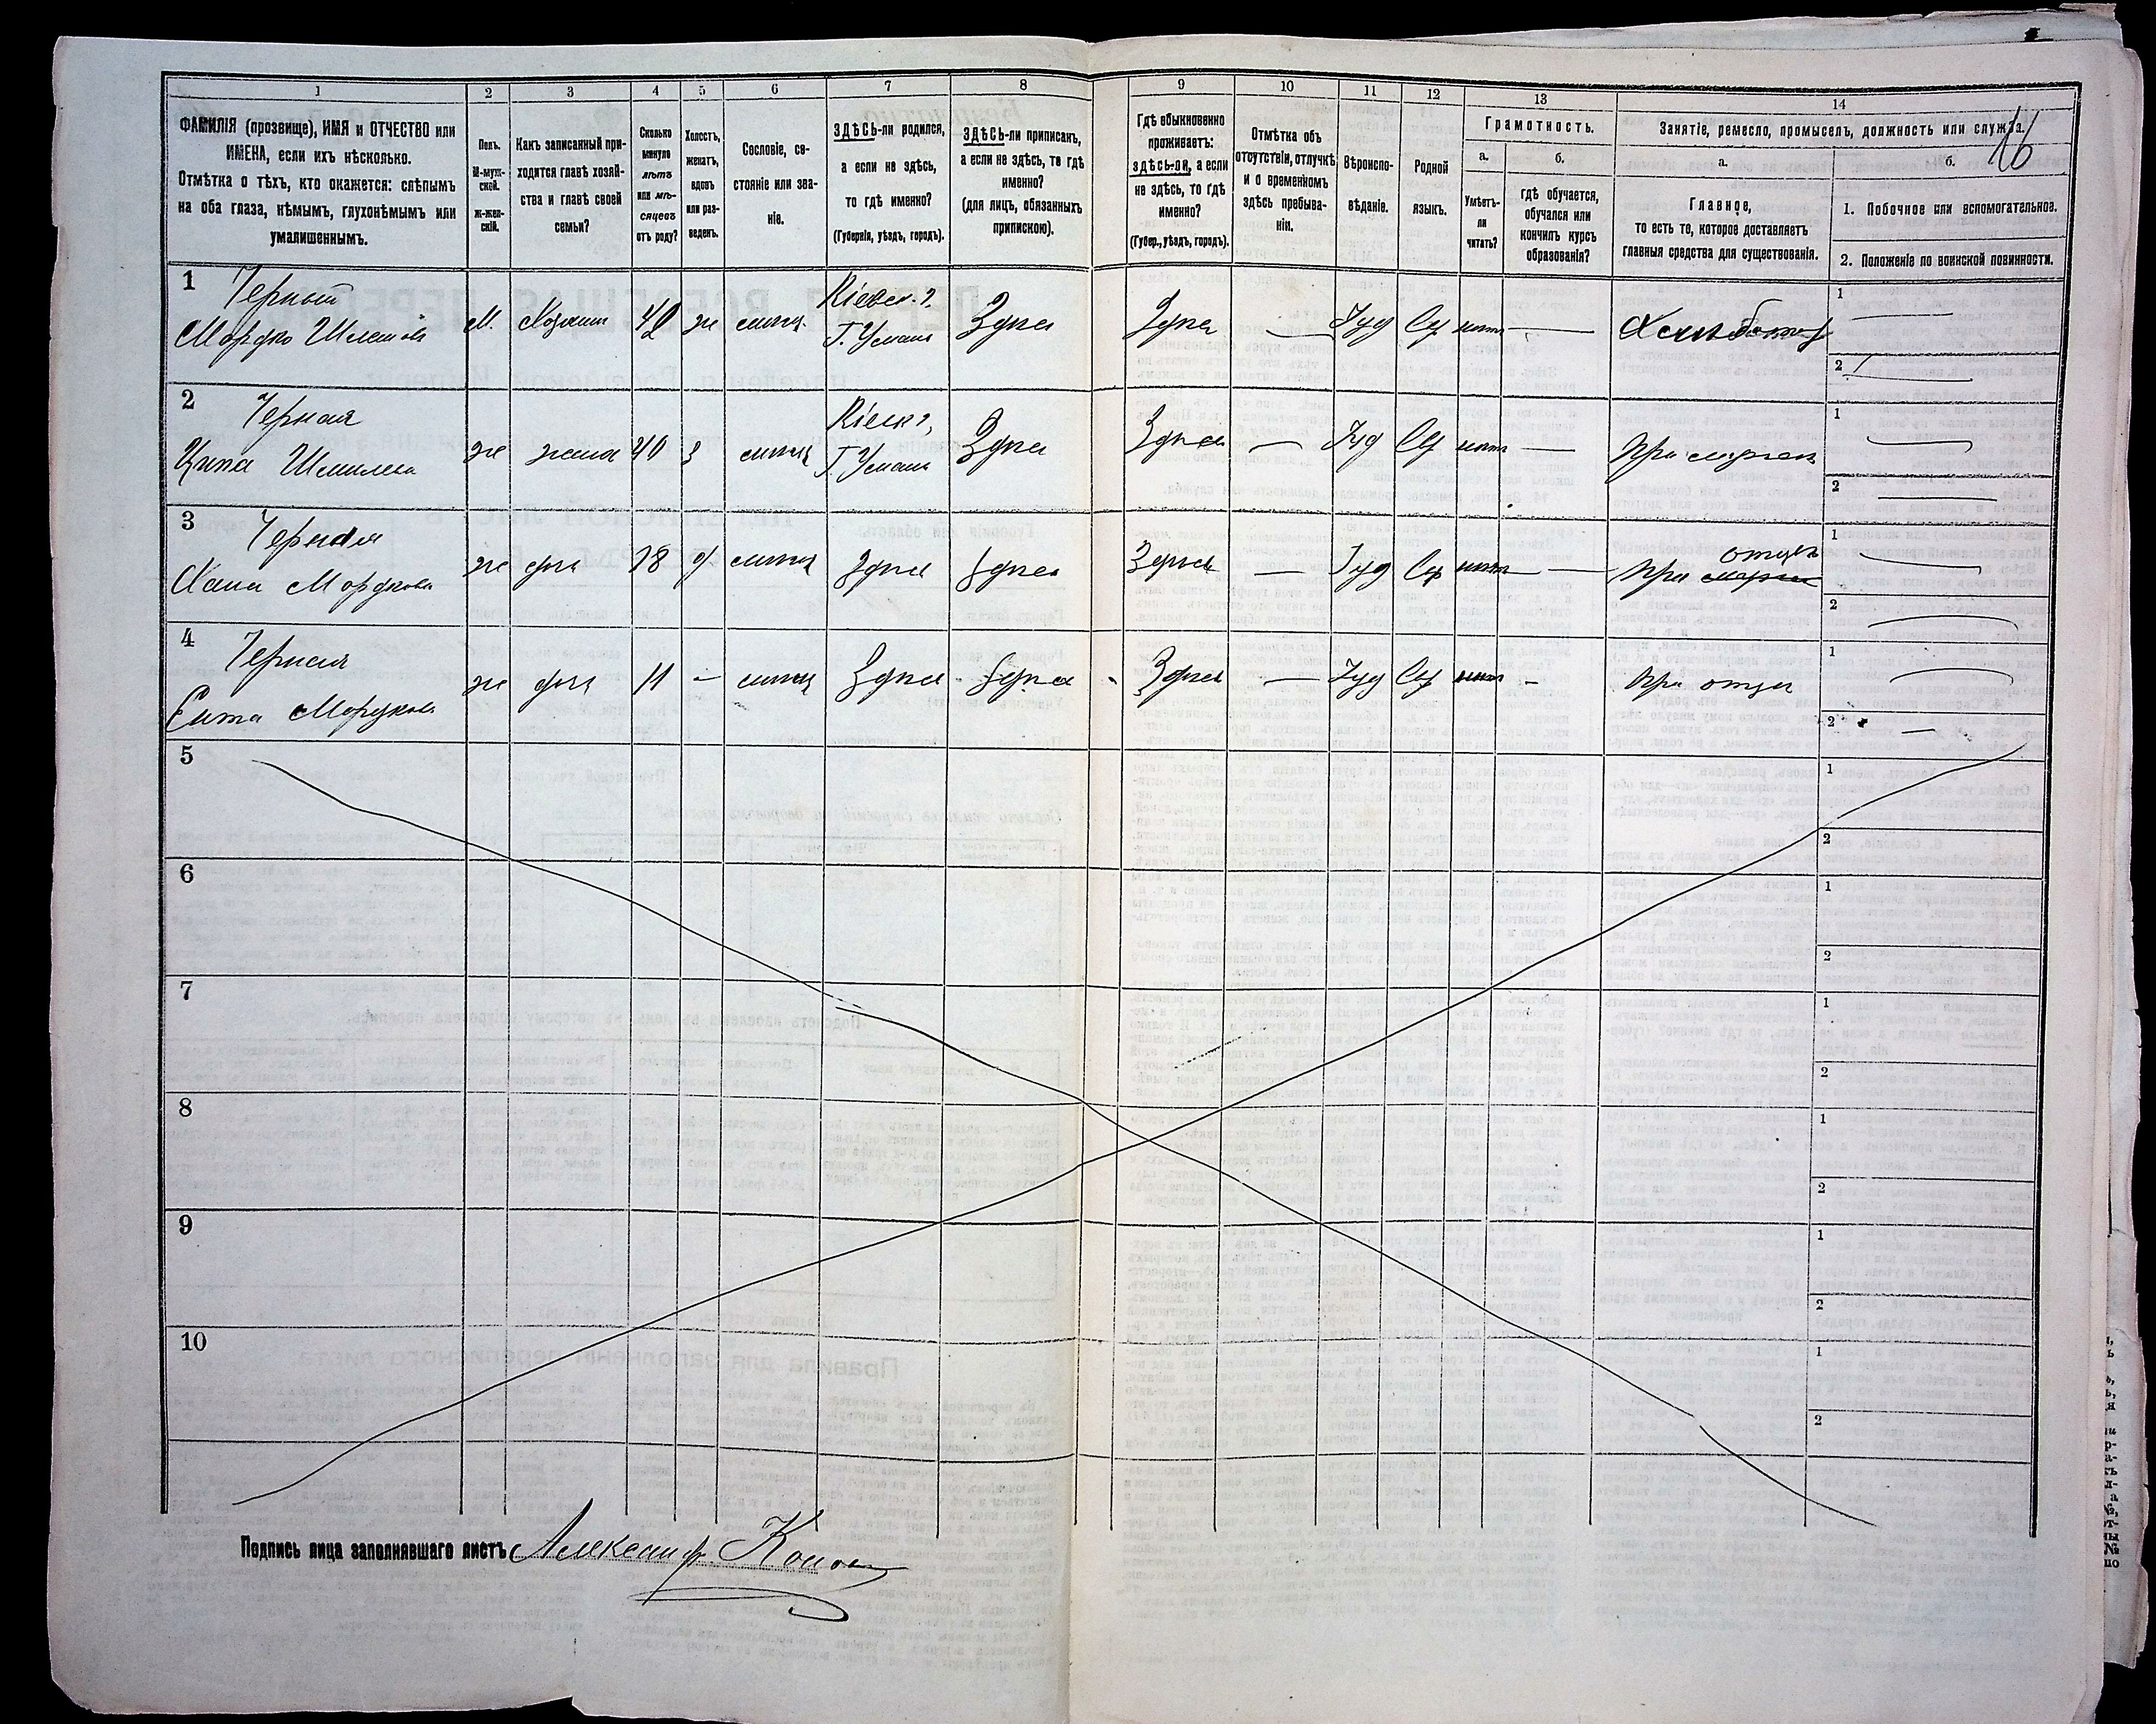 1 2 3 4 5 6 7 8 9 10 11 12 13 14
16
ФАМИЛІЯ (прозвище), ИМЯ и ОТЧЕСТВО или
ИМЕНА, если ихъ нѣсколько.
Отмѣтка о тѣхъ, кто окажется: слѣпымъ
на оба глаза, нѣмымъ, глухонѣмымъ или
умалишеннымъ.
Полъ.
М-муж-
ской.
Ж-жен-
скій.
Какъ записанный при-
ходится главѣ хозяй-
ства и главѣ своей
семьи?
Сколько
минуло
лѣтъ
или мѣ-
сяцевъ
отъ роду?
Холостъ,
женатъ,
вдовъ
или раз-
веденъ.
Сословіе, со-
стояніе или зва-
ніе.
ЗДѢСЬ-ли родился,
а если не здѣсь,
то гдѣ именно?
(Губернія, уѣздъ, городъ).
ЗДѢСЬ-ли приписанъ,
а если не здѣсь, то гдѣ
именно?
(для лицъ, обязанныхъ
припискою).
Гдѣ обыкновенно
проживаетъ:
здѣсь-ли, а если
не здѣсь, то гдѣ
именно?
(Губер., уѣздъ, городъ).
Отмѣтка объ
отсутствіи, отлучкѣ
и о временномъ
здѣсь пребыва-
ніи.
Вѣроиспо-
вѣданіе.
Родной
языкъ.
Грамотность.
а.
Умѣетъ-
ли
читать?
б.
гдѣ обучается,
обучался или
кончилъ курсъ
образованія?
Занятіе, ремесло, промыселъ, должность или служба.
а.
Главное,
то есть то, которое доставляетъ
главныя средства для существованія.
б.
1. Побочное или вспомогательное.
2. Положеніе по воинской повинности.
1 Черный М. Хозяинъ 42 ж Г. Умань Здѣсь Здѣсь Іуд Евр нѣтъ 1
Мордко 2
2 Черная ж жена 40 з Г. Умань Здѣсь Здѣсь Іуд Евр нѣтъ При мужѣ 1
Ципа Шмилева 2
3 Черная ж дочь 18 д Здѣсь Здѣсь Здѣсь Іуд Евр нѣтъ При отцѣ 1
Хана Мордкова 2
4 Черная ж дочь 11 Здѣсь Здѣсь Здѣсь Іуд Евр нѣтъ При отцѣ 1
Ента Мордкова 2
5 1
2
6 1
2
7 1
2
8 1
2
9 1
2
10 1
2
Подпись лица заполнявшаго листъ Александр